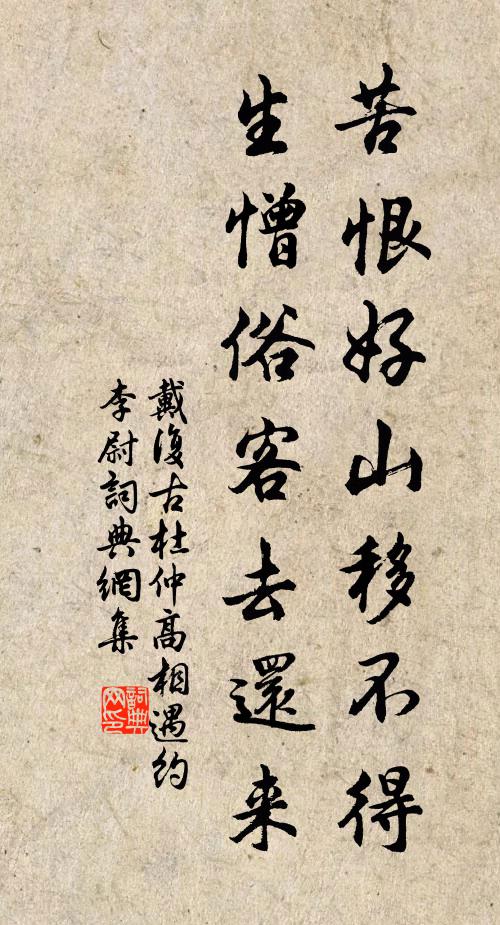 苦恨好山移不得
生憎俗客去還来
戴復古杜仲高相遇約
李尉詞典網集
詞典网印